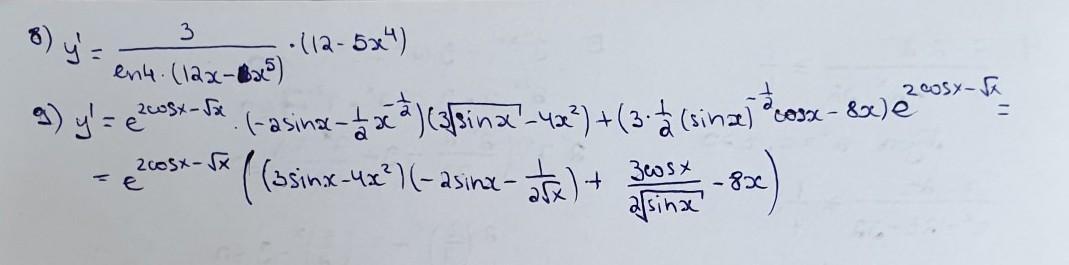 8) y' = 3 / (ln4 · (12x - x⁵)) · (12 - 5x⁴)
9) y' = e^(2cosx - √x) · (-2sinx - 1/2 x^(-1/2))(3√sinx - 4x²) + (3 · 1/2 (sinx)^(-1/2) cosx - 8x) e^(2cosx - √x) =
= e^(2cosx - √x) ((3sinx - 4x²)(-2sinx - 1/(2√x)) + 3cosx/(2√sinx) - 8x)